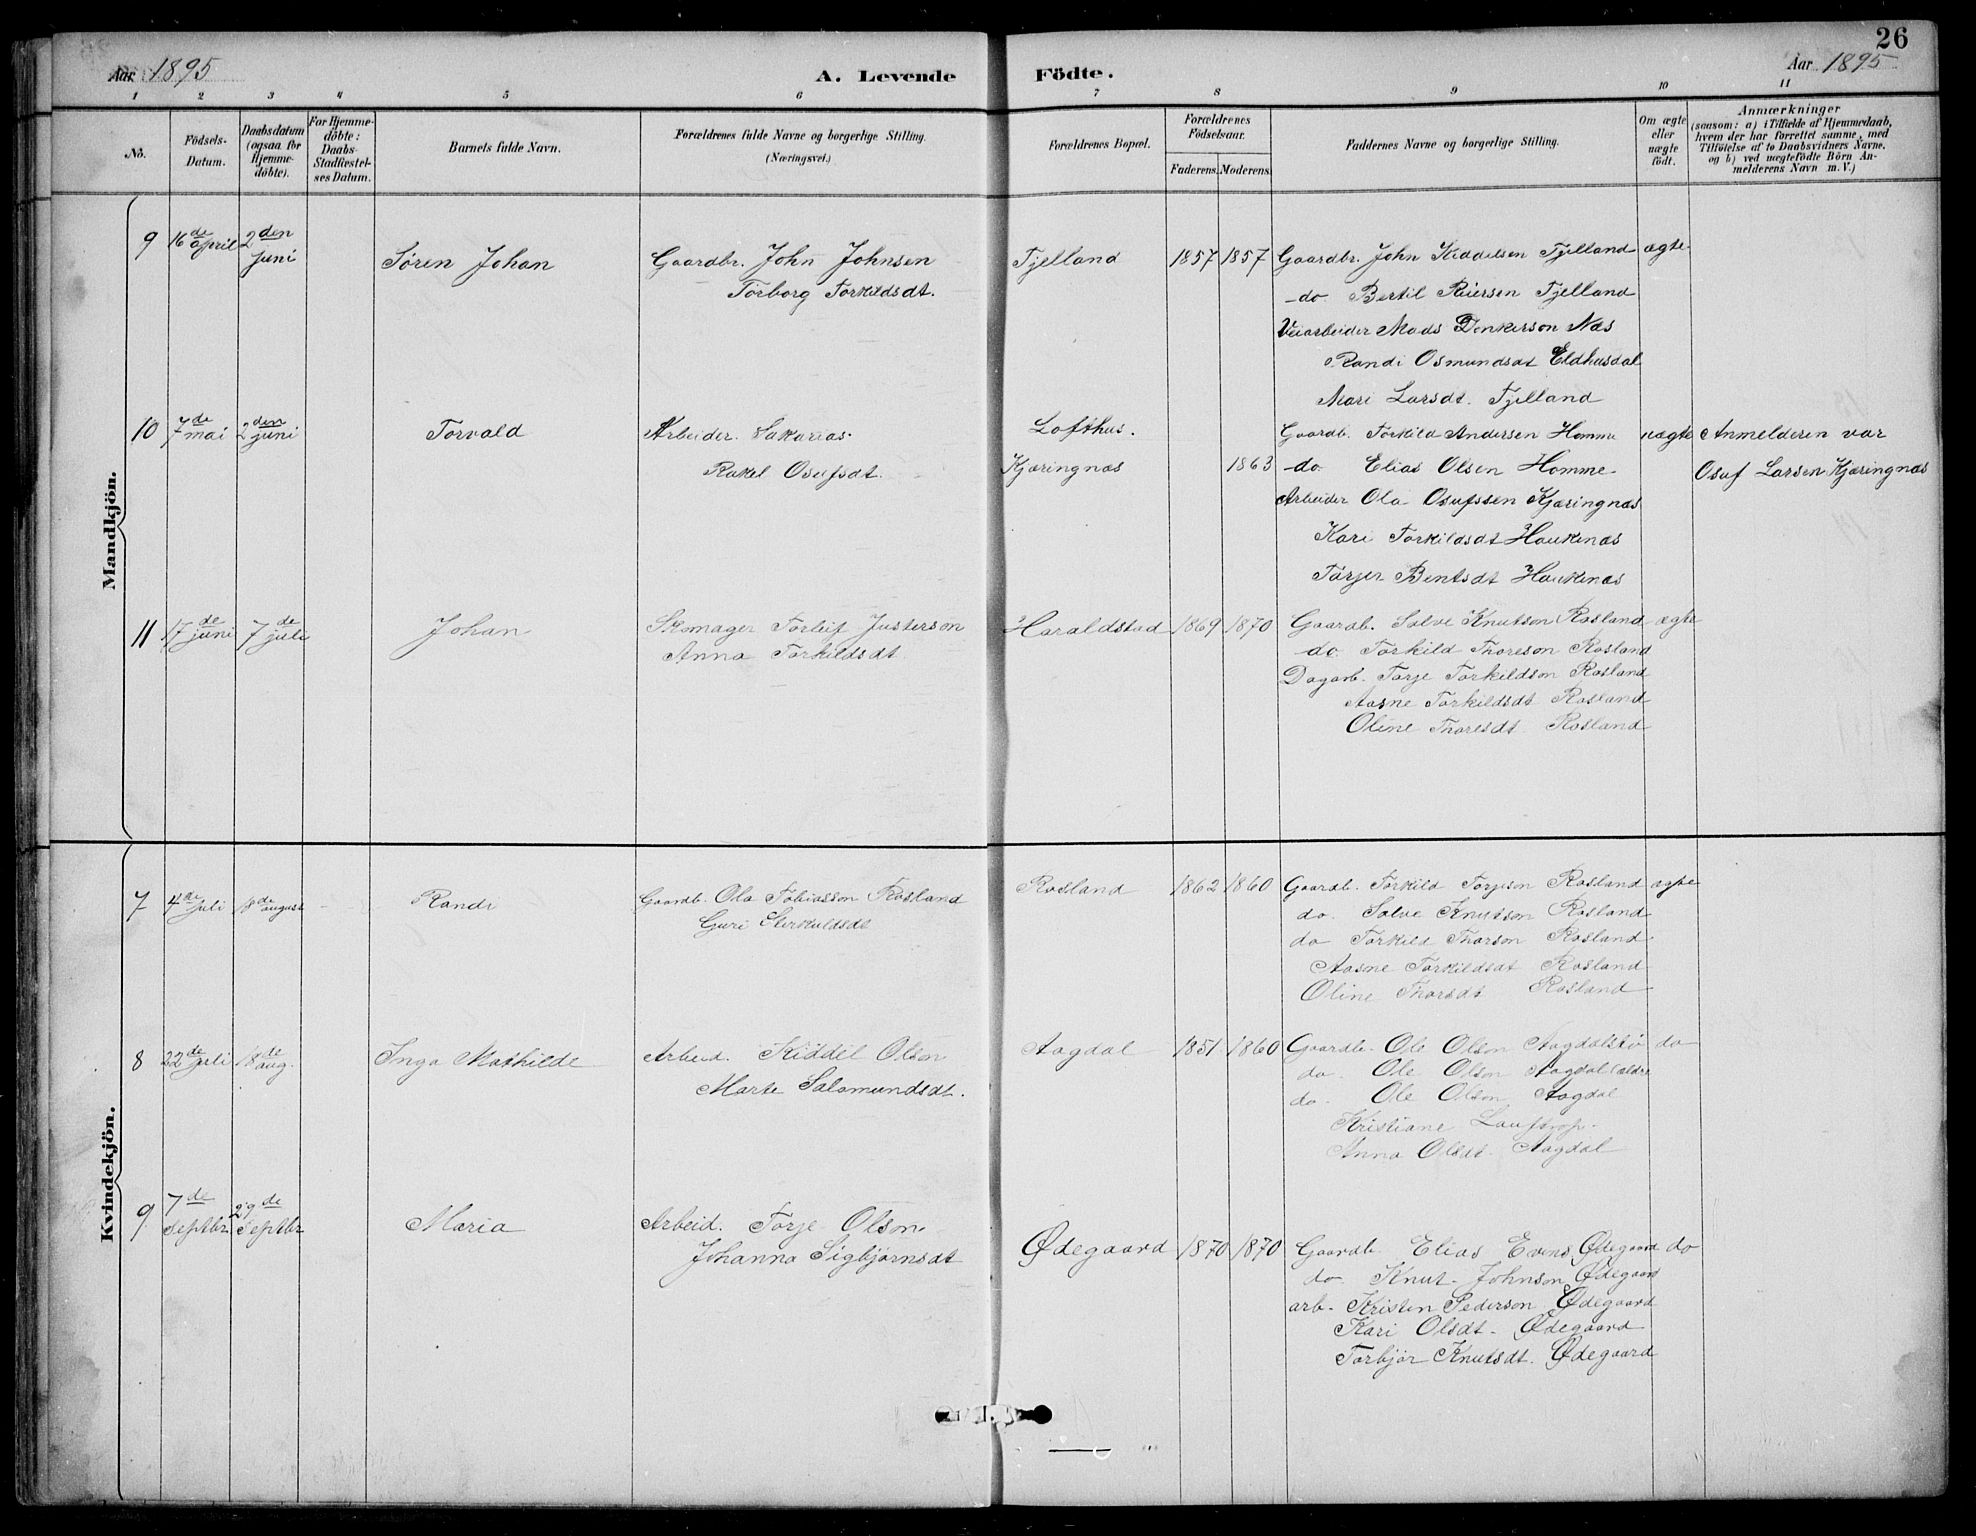 26
Aar 1895
A. Levende Födte.
Aar 1895
1 2 3 4 5 6 7 8 9 10 11
No.
Födsels-Datum.
Daabsdatum (ogsaa for Hjemme-döbte).
For Hjemme-döbte: Daabs-Stadfæstel-ses Datum.
Barnets fulde Navn.
Forældrenes fulde Navne og borgerlige Stilling.
(Næringsvei.)
Forældrenes Bopæl.
Forældrenes Födselsaar.
Faderens. Moderens.
Faddernes Navne og borgerlige Stilling.
Om ægte eller uægte födt.
Anmærkninger
(saasom: a) i Tilfælde af Hjemmedaab,
hvem der har forrettet samme, med
Tilföielse af to Daabsvidners Navne.
og b) ved uægtefödte Börn An-
melderens Navn m. V.)
Mandkjön.
9 16de april 2den juni Søren Johan Gaardbr. John Johnsen Tjelland 1857 1857 Gaardbr. John Kiddelsen Tjelland ægte
Torborg Torkildsdt. do Bertil Reiersen Tjelland
Veiarbeider Mads Denkerson Næs
Randi Osmundsdt Eldhusdal
Mari Larsdt. Tjelland
10 7de mai 2den juni Torvald Arbeider. Sakarias Lofthus. Gaardb. Torkild Andersen Homme uægte Anmelderen var
Rakel Osufsdt. Kjæringnæs 1863 do Elias Olsen Homme Osuf Larsen Kjæringnæs
Arbeider Ola Osufssen Kjæringnæs
Kari Torkildsdt Haukenæs
Torjer Bentsdt Haukenæs
11 17de juni 7de juli Johan Skomager Torleif Justerson Haraldstad 1869 1870 Gaardb. Salve Knutson Rosland ægte
Anna Torkildsdt. do. Torkild Thoreson Rosland
Dagarb. Torje Torkildson Rosland
Aasne Torkildsdt Rosland
Oline Thoresdt Rosland
Kvindekjön.
7 4de juli 18de august Randi Gaardb. Ola Tobiasson Rosland Rosland 1862 1860 Gaardb. Torkild Torjeson Rosland ægte
Guri Sterkuldsdt do. Salve Knutson Rosland
do Torkild Thorson Rosland
Aasne Torkildsdt Rosland
Oline Thorsdt Rosland
8 22de juli 18de aug. Inga Mathilde Arbeid. Kiddel Olson Aagdal 1851 1860 Gaardb. Ole Olson Aagdalstø do
Marte Salamundsdt. do. Ole Olson Aagdal (ældre
do. Ole Olson Aagdal
Kristiane
Anna Olsdt. Aagdal
9 7de Septbr. 29de Septbr Maria Arbeid. Torje Olson Ødegaard 1870 1870 Gaardb. Elias Evens. Ødegaard do
Johanna Sigbjørnsdt do. Knut Johnson Ødegaard
arb. Kristen Pederson Ødegaard
Kari Olsdt. Ødegaard
Torbjør Knutsdt. Ødegaard